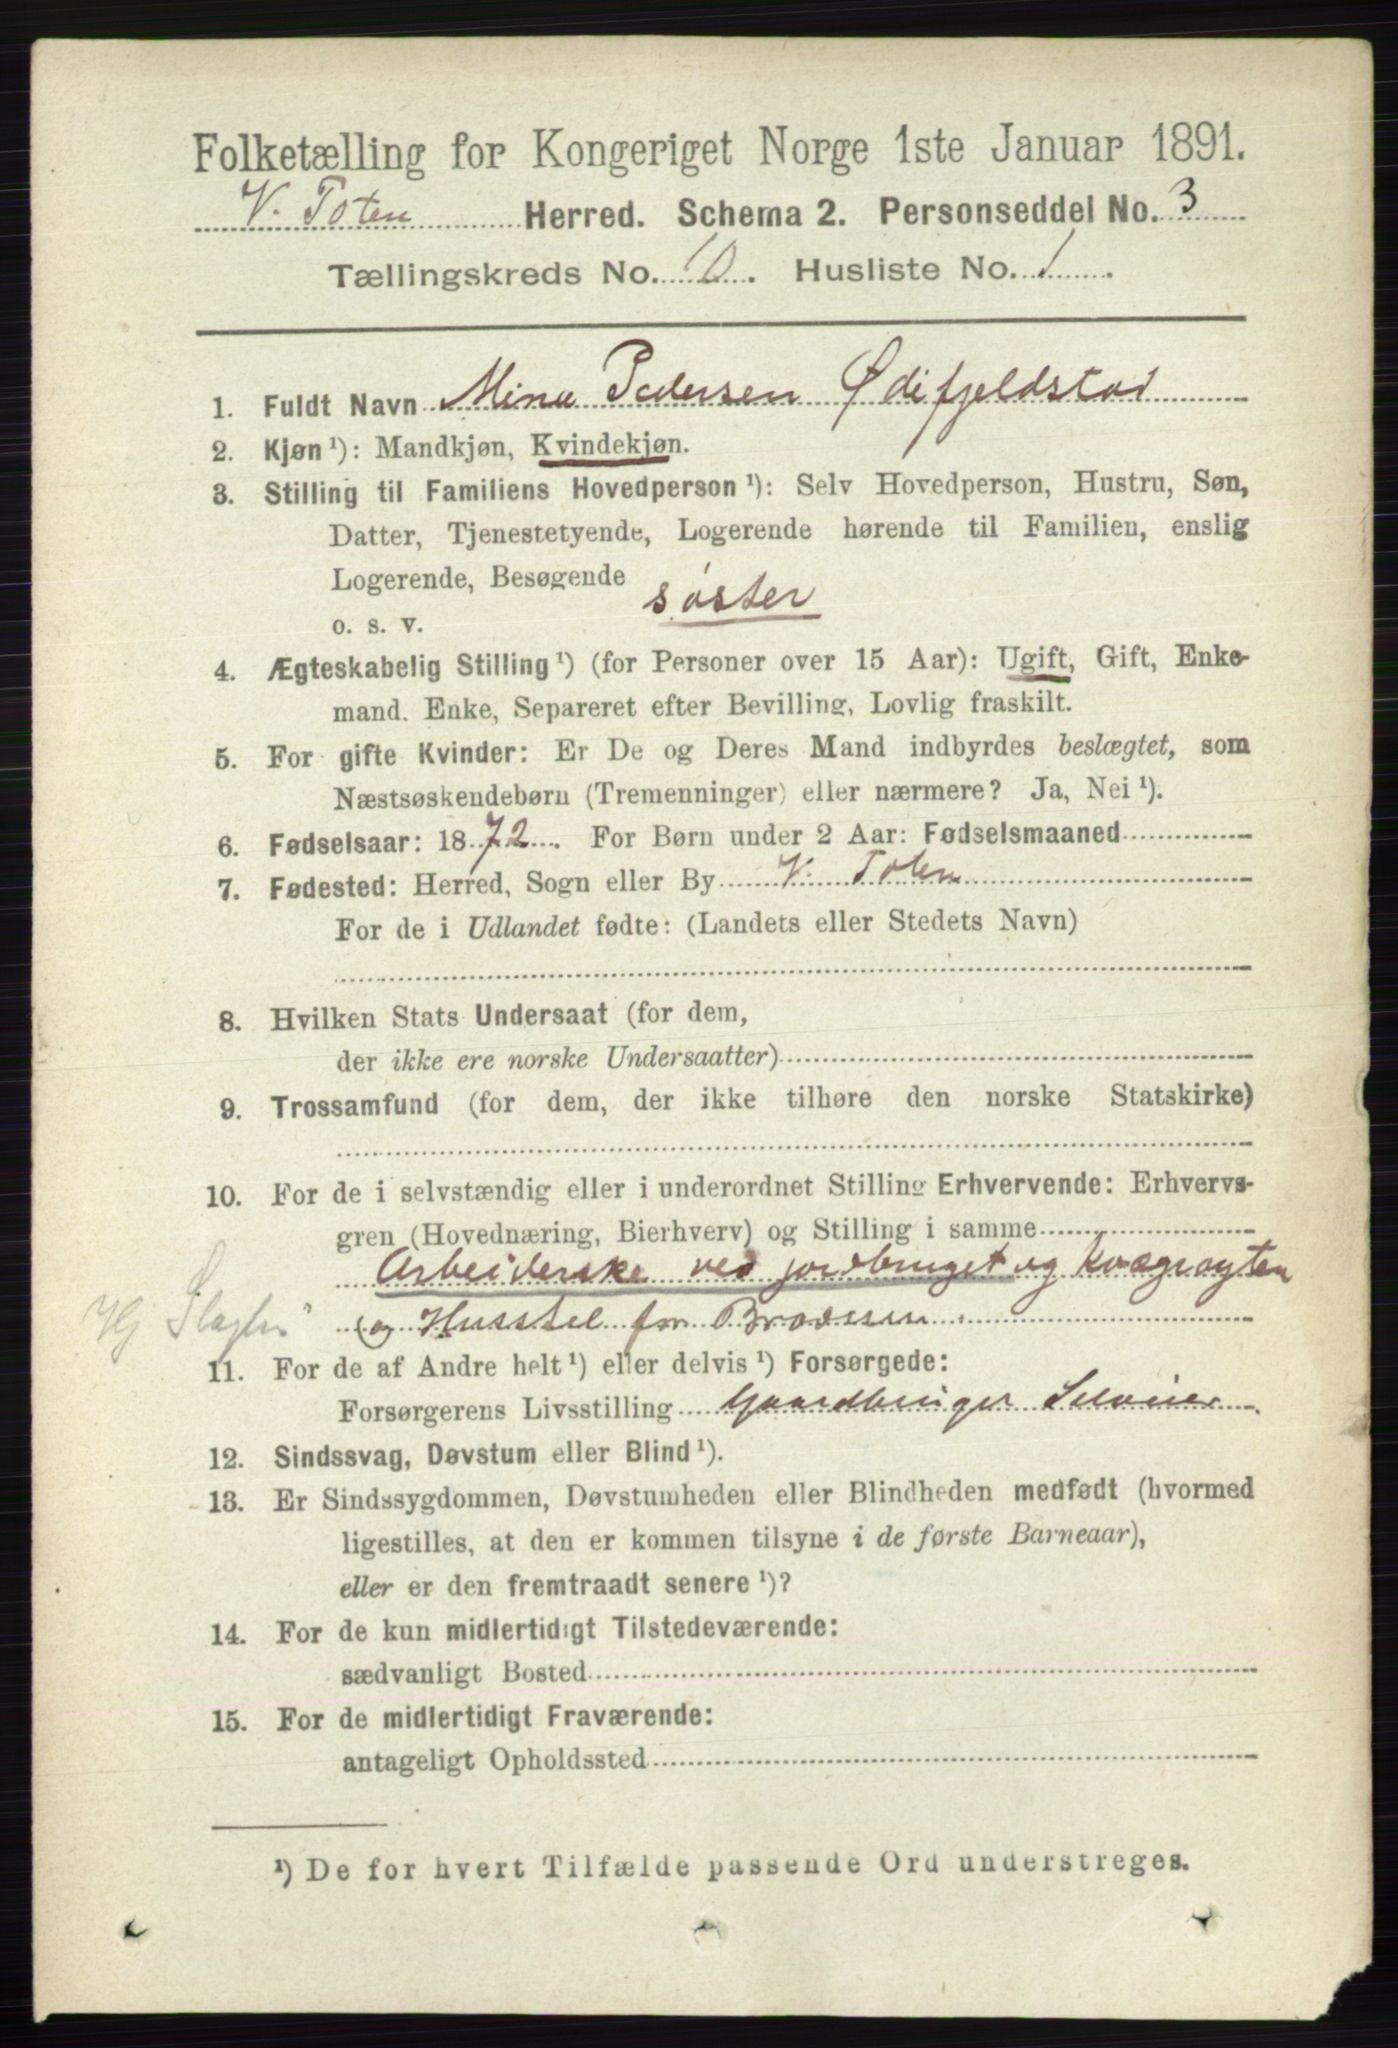 Folketælling for Kongeriget Norge 1ste Januar 1891.
V. Toten Herred. Schema 2. Personseddel No. 3
Tællingskreds No. 10. Husliste No. 1.
1. Fuldt Navn Mina Pedersen Ødifjeldstad
2. Kjøn ¹): Mandkjøn, Kvindekjøn.
3. Stilling til Familiens Hovedperson ¹): Selv Hovedperson, Hustru, Søn,
Datter, Tjenestetyende, Logerende hørende til Familien, enslig
Logerende, Besøgende
o. s. v. søster
4. Ægteskabelig Stilling ¹) (for Personer over 15 Aar): Ugift, Gift, Enke-
mand. Enke, Separeret efter Bevilling, Lovlig fraskilt.
5. For gifte Kvinder: Er De og Deres Mand indbyrdes beslægtet, som
Næstsøskendebørn (Tremenninger) eller nærmere? Ja, Nei ¹).
6. Fødselsaar: 1872. For Børn under 2 Aar: Fødselsmaaned
7. Fødested: Herred, Sogn eller By V. Toten
For de i Udlandet fødte: (Landets eller Stedets Navn)
8. Hvilken Stats Undersaat (for dem,
der ikke ere norske Undersaatter)
9. Trossamfund (for dem, der ikke tilhøre den norske Statskirke)
10. For de i selvstændig eller i underordnet Stilling Erhvervende: Erhvervs-
gren (Hovednæring, Bierhverv) og Stilling i samme
Arbeiderske ved jordbruget og kvægrøgten
Hj Slagter (og Husstel for Brødrene.
11. For de af Andre helt ¹) eller delvis ¹) Forsørgede:
Forsørgerens Livsstilling Gaardbruger Selveier
12. Sindssvag, Døvstum eller Blind ¹).
13. Er Sindssygdommen, Døvstumheden eller Blindheden medfødt (hvormed
ligestilles, at den er kommen tilsyne i de første Barneaar),
eller er den fremtraadt senere ¹)?
14. For de kun midlertidigt Tilstedeværende:
sædvanligt Bosted
15. For de midlertidigt Fraværende:
antageligt Opholdssted
¹) De for hvert Tilfælde passende Ord understreges.